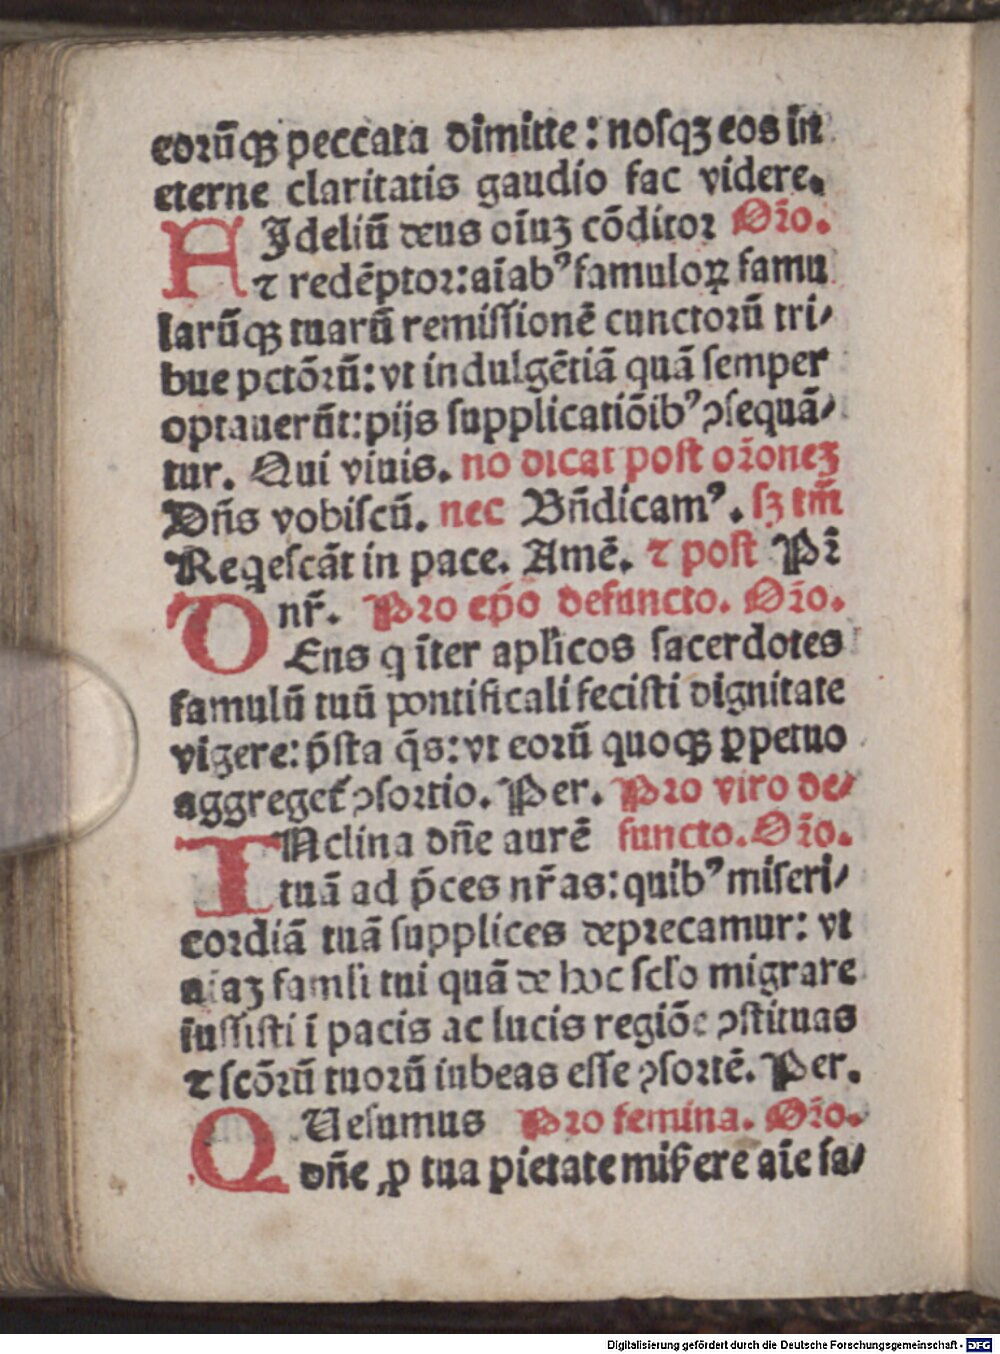 eorūqꝫ peccata dimitte: nosqꝫ eos in
eterne claritatis gaudio fac videre.
FIdeliū deus oīuꝫ cōditor Orō.
⁊ redēptor: aīabꝰ famuloꝝ famu
larūqꝫ tuarū remissionē cunctorū tri/
bue pctōrū: vt indulgētiā quā semper
optauerūt: pijs supplicatiōibꝰ ꝯsequā/
tur. Qui viuis. no dicat post orōneꝫ
Dn̄s vobiscū. nec Bn̄dicamꝰ. sꝫ tm̄
Reqescāt in pace. Amē. ⁊ post Pr̄
nr̄. Pro ep̄o defuncto. Orō.
DEns q īter apl̄icos sacerdotes
famulū tuū pontificali fecisti dignitate
vigere: p̄sta q̄s: vt eorū quoqꝫ ꝑpetuo
aggreget̄ ꝯsortio. Per. Pro viro de/
INclina dn̄e aurē functo. Orō.
tuā ad p̄ces nr̄as: quibꝰ miseri/
cordiā tuā supplices deprecamur: vt
aīaꝫ famli tui quā de hoc sclo migrare
iussisti ī pacis ac lucis regiōe ꝯstituas
⁊ scōrū tuorū iubeas esse ꝯsortē. Per.
QUesumus Pro femina. Orō.
dn̄e ꝓ tua pietate mis̄ere aīe fa/
Digitalisierung gefördert durch die Deutsche Forschungsgemeinschaft - DFG